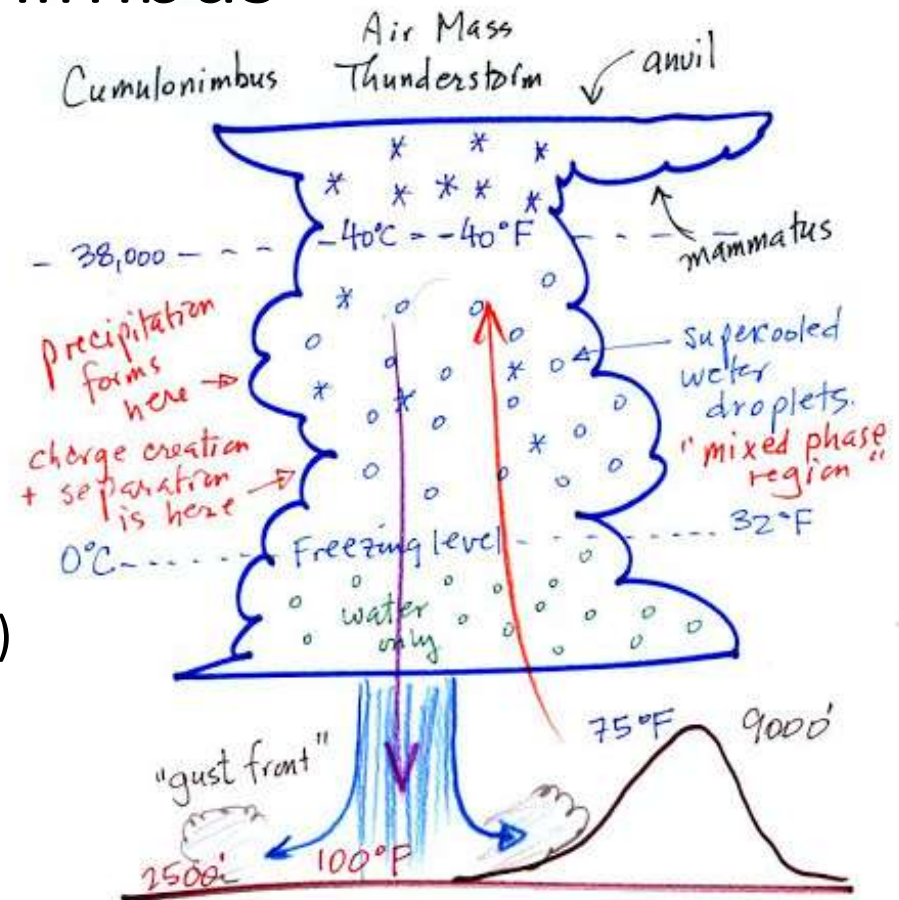 Air Mass
Thunderstorm
Cumulonimbus
anvil
mammatus
- 38,000 - - - -40°C = -40°F
precipitation
forms
here →
supercooled
water
droplets.
"mixed phase
region"
charge creation
+ separation
is here
32°F
0°C
Freezing level
water
only
75°F
9000'
"gust front"
2500'
100°F
)